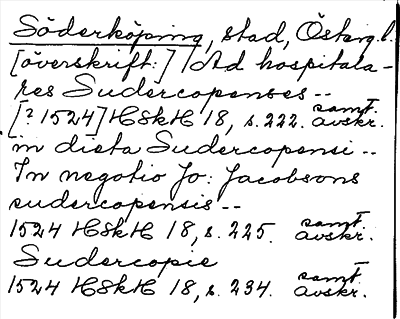 Söderköping, stad, Östergl.
[överskrift:] Ad hospitala-
res Sudercopenses --
[? 1524] HSkH 18, s. 222. samt. avskr.
in dicta Sudercopensi --
In negotio Jo: Jacobsons
sudercopensis --
1524 HSkH 18, s. 225. samt. avskr.
Sudercopie
1524 HSkH 18, s. 234. samt. avskr.